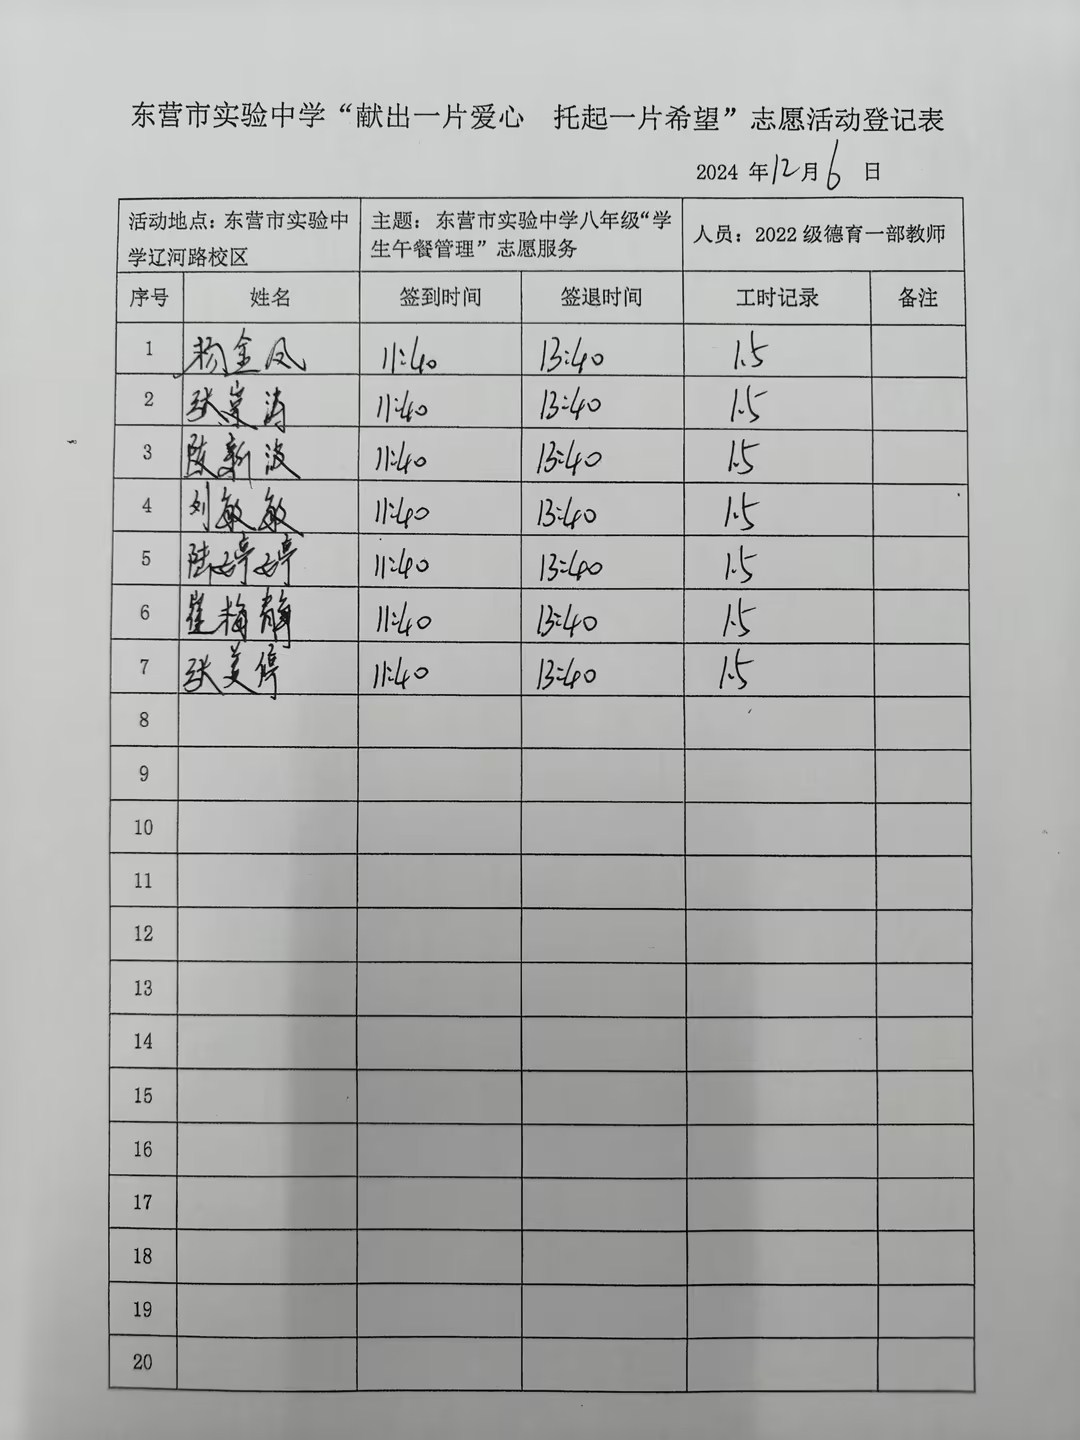 东营市实验中学“献出一片爱心　托起一片希望”志愿活动登记表
2024 年12月6 日
活动地点：东营市实验中 主题：东营市实验中学八年级“学 人员：2022 级德育一部教师
学辽河路校区 生午餐管理”志愿服务
序号 姓名 签到时间 签退时间 工时记录 备注
1 杨金凤 11:40 13:40 1.5
2 张崇涛 11:40 13:40 1.5
3 陈新波 11:40 13:40 1.5
4 刘敏敏 11:40 13:40 1.5
5 陆婷婷 11:40 13:40 1.5
6 崔梅静 11:40 13:40 1.5
7 张美停 11:40 13:40 1.5
8
9
10
11
12
13
14
15
16
17
18
19
20